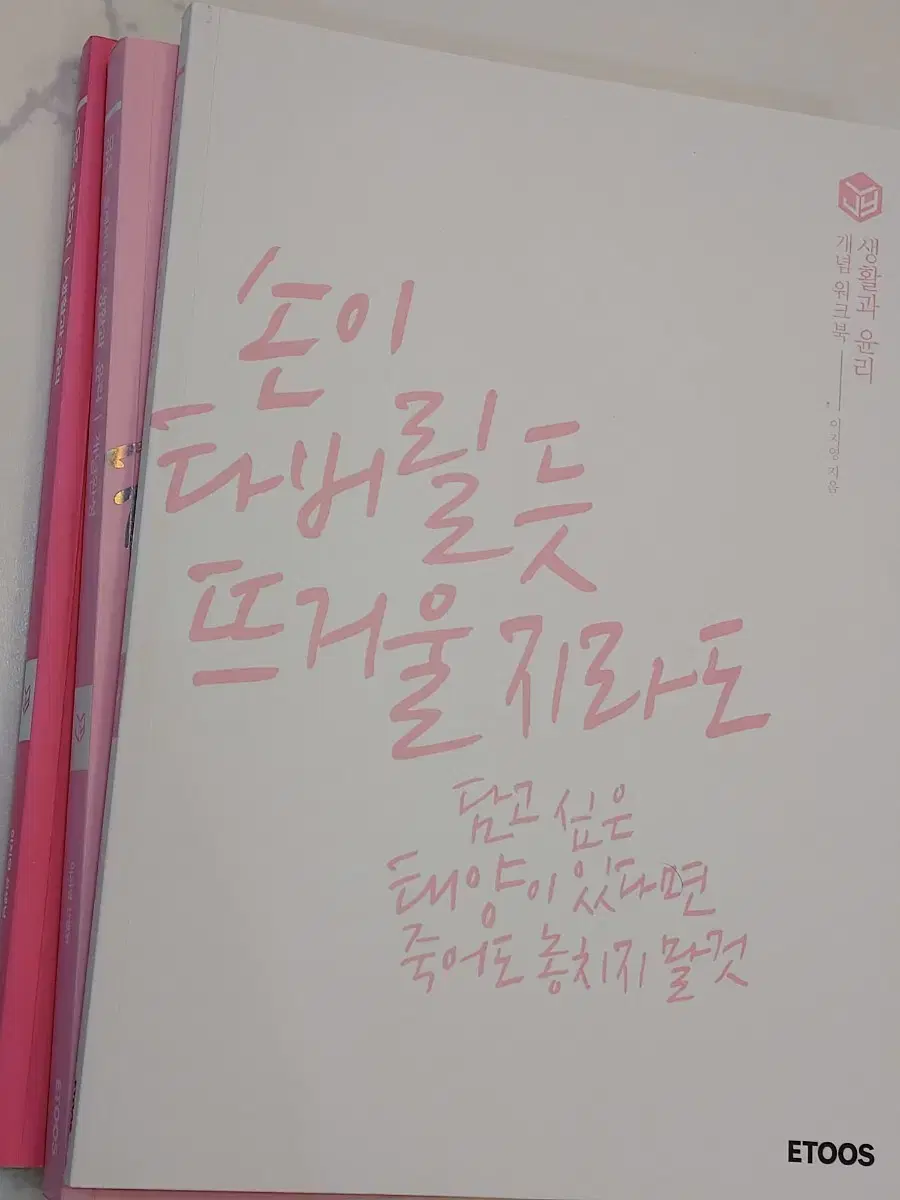 생활과 윤리
개념 워크북
이지영 지음
손이
타버릴 듯
뜨거울지라도
담고 싶은
태양이 있다면
죽어도 놓치지 말 것
ETOOS
ETOOS